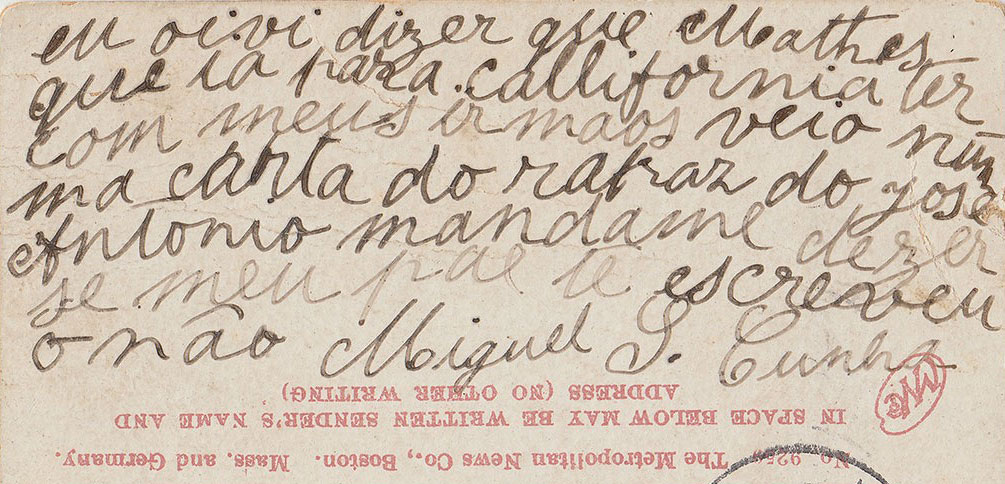 eu oivi dizer que Mathes
que ia para California ter
com meus irmaos veio num
ma carta do rapaz do José
Antonio mandame dezer
se meu pae te escreveu
o não Miguel S. Cunha
ADDRESS (NO OTHER WRITING)
IN SPACE BELOW MAY BE WRITTEN SENDER'S NAME AND
No 925 The Metropolitan News Co., Boston. Mass. and Germany.